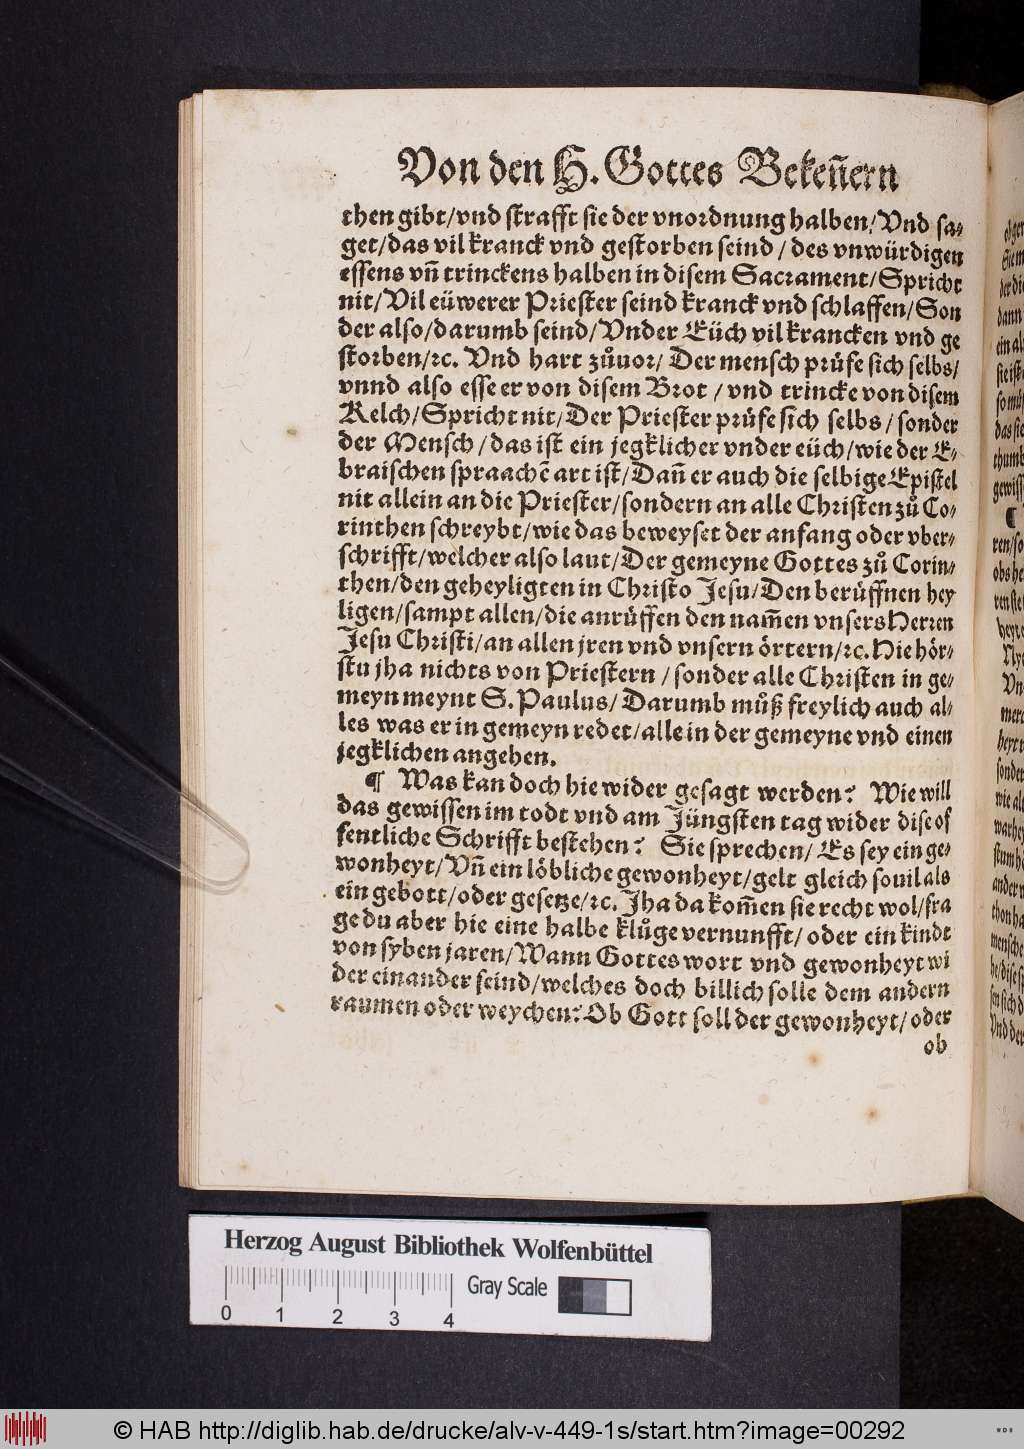 Von den H. Gottes Bekeñern
then gibt/vnd strafft sie der vnordnung halben/Vnd sa-
get/das vil kranck vnd gestorben seind/des vnwürdigen
essens vñ trinckens halben in disem Sacrament/Spricht
nit/Vil eüwerer Priester seind kranck vnd schlaffen/Son
der also/darumb seind/Vnder Eüch vil krancken vnd ge
storben/ꝛc. Vnd hart zůuor/Der mensch prüfe sich selbs/
vnnd also esse er von disem Brot/vnd trincke von disem
Kelch/Spricht nit/Der Priester prüfe sich selbs/sonder
der Mensch/das ist ein jegklicher vnder eüch/wie der E-
braischen spraachẽ art ist/Dañ er auch die selbige Epistel
nit allein an die Priester/sondern an alle Christen zů Co-
rinthen schreybt/wie das beweyset der anfang oder vber-
schrifft/welcher also laut/Der gemeyne Gottes zů Corin-
then/den geheyligten in Christo Jesu/Den berüffnen hey
ligen/sampt allen/die anrüffen den nam̃en vnsers Herren
Jesu Christi/an allen jren vnd vnsern örtern/ꝛc. Hie hör-
stu jha nichts von Priestern/sonder alle Christen in ge-
meyn meynt S. Paulus/Darumb můß freylich auch al-
les was er in gemeyn redet/alle in der gemeyne vnd einen
jegklichen angehen.
¶ Was kan doch hie wider gesagt werden? Wie will
das gewissen im todt vnd am Jüngsten tag wider dise of
fentliche Schrifft bestehen? Sie sprechen/Es sey ein ge-
wonheyt/Vñ ein löbliche gewonheyt/gelt gleich souil als
ein gebott/oder gesetze/ꝛc. Jha da kom̃en sie recht wol/fra
ge du aber hie eine halbe klůge vernunfft/oder ein kindt
von syben jaren/Wann Gottes wort vnd gewonheyt wi
der einander seind/welches doch billich solle dem andern
raumen oder weychen? Ob Gott soll der gewonheyt/oder
ob
Herzog August Bibliothek Wolfenbüttel
Gray Scale
0 1 2 3 4
© HAB http://diglib.hab.de/drucke/alv-v-449-1s/start.htm?image=00292